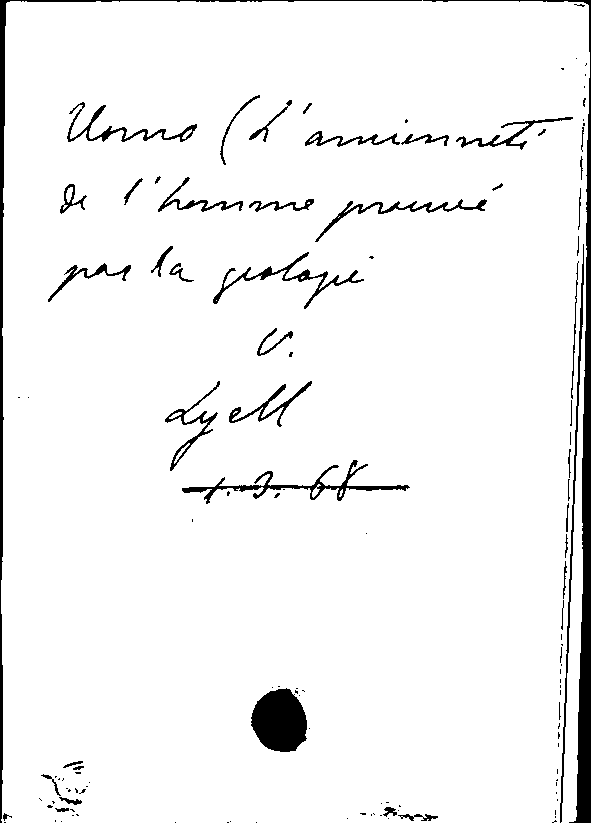 Uomo (L'ancienneté
de l'homme prouvé
par la geologie
v.
Lyell
1.3.68